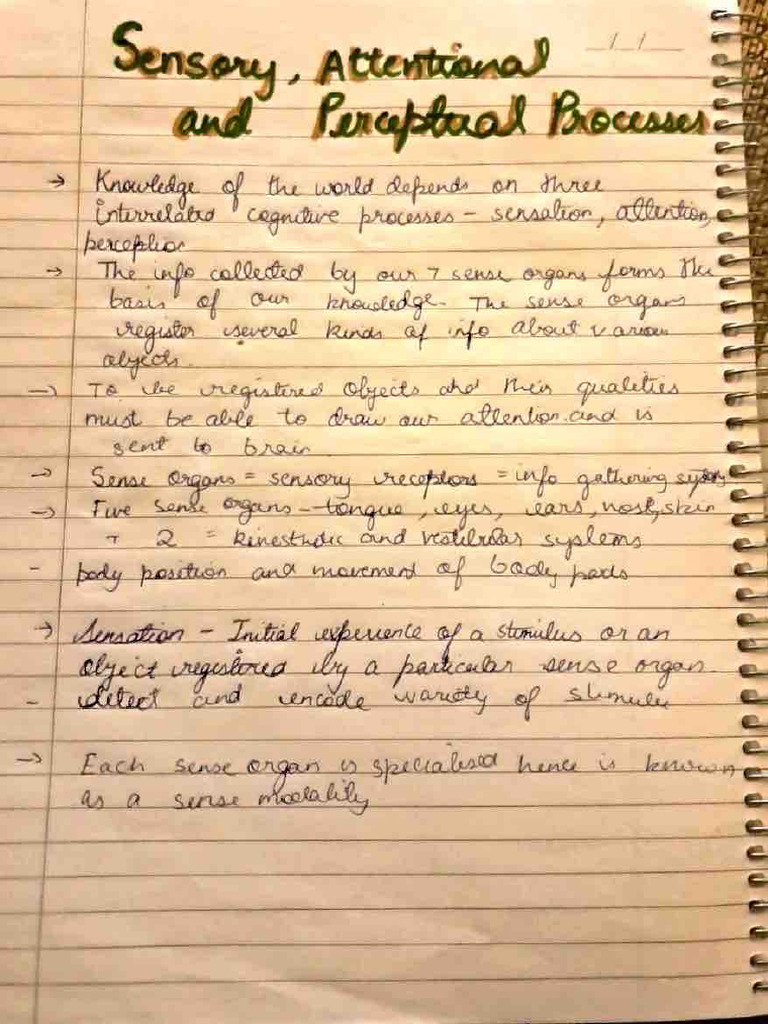 _/_/_
Sensory, Attentional
and Perceptual Processes
→ Knowledge of the world depends on three
interrelated cognitive processes - sensation, attention,
perception
→ The info collected by our 7 sense organs forms the
basis of our knowledge. The sense organs
register several kinds of info about various
objects.
→ To be registered objects and their qualities
must be able to draw our attention. and is
sent to brain
→ Sense organs = sensory receptors = info gathering system
→ Five sense organs - tongue, eyes, ears, nose, skin
+ 2 = kinesthetic and vestibular systems
- body position and movement of body parts
→ Sensation - Initial experience of a stimulus or an
object registered by a particular sense organ.
- detect and encode variety of stimuli
→ Each sense organ is specialised hence is known
as a sense modality